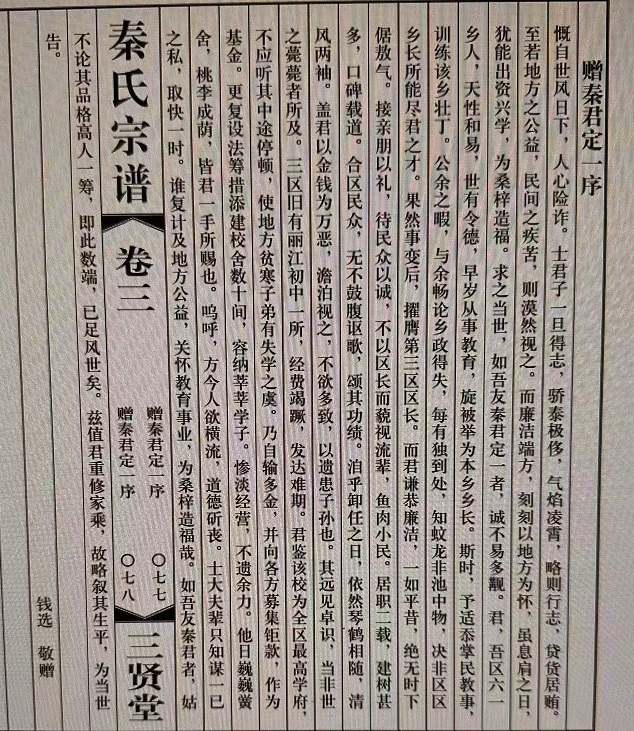 赠秦君定一序
慨自世风日下，人心险诈。士君子一旦得志，骄泰极侈，气焰凌霄，略则行志，贷货居贿。
至若地方之公益，民间之疾苦，则漠然视之。而廉洁端方，刻刻以地方为怀，虽息肩之日，
犹能出资兴学，为桑梓造福。求之当世，如吾友秦君定一者，诚不易多觏。君，吾区六一
乡人，天性和易，世有令德，早岁从事教育，旋被举为本乡乡长。斯时，予适忝掌民教事，
训练该乡壮丁。公余之暇，与余畅论乡政得失，每有独到处，知蛟龙非池中物，决非区区
乡长所能尽君之才。果然事变后，擢膺第三区区长。而君谦恭廉洁，一如平昔，绝无时下
倨敖气。接亲朋以礼，待民众以诚，不以区长而藐视流辈，鱼肉小民。居职二载，建树甚
多，口碑载道。合区民众，无不鼓腹讴歌，颂其功绩。洎乎卸任之日，依然琴鹤相随，清
风两袖。盖君以金钱为万恶，澹泊视之，不欲多致，以遗患子孙也。其远见卓识，当非世
之薨薨者所及。三区旧有丽江初中一所，经费竭蹶，发达难期。君鉴该校为全区最高学府，
不应听其中途停顿，使地方贫寒子弟有失学之虞。乃自输多金，并向各方募集钜款，作为
基金。更复设法筹措添建校舍数十间，容纳莘莘学子。惨淡经营，不遗余力。他日巍巍黉
舍，桃李成荫，皆君一手所赐也。呜呼，方今人欲横流，道德斫丧。士大夫辈只知谋一己
之私，取快一时。谁复计及地方公益，关怀教育事业，为桑梓造福哉。如吾友秦君者，姑
赠秦君定一序 〇七七
秦氏宗谱 卷三 三贤堂
赠秦君定一序 〇七八
不论其品格高人一筹，即此数端，已足风世矣。兹值君重修家乘，故略叙其生平，为当世
告。
钱选 敬赠